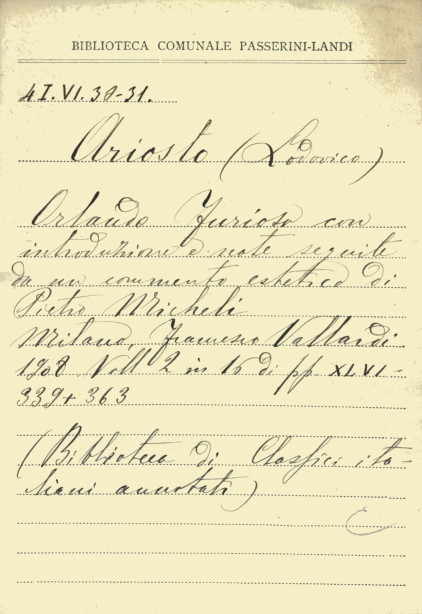 BIBLIOTECA COMUNALE PASSERINI-LANDI
4I.VI.30-31.
Ariosto (Lodovico)
Orlando Furioso con
introduzione e note seguite
da un commento estetico di
Pietro Micheli
Milano, Francesco Vallardi
1908 Voll 2 in 16 di pp XI.VI-
339+363
(Biblioteca di Classici ita-
liani annotati)